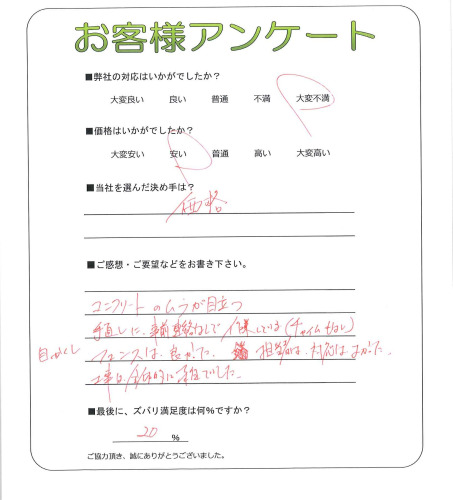 お客様アンケート
■弊社の対応はいかがでしたか？
大変良い 良い 普通 不満 大変不満
■価格はいかがでしたか？
大変安い 安い 普通 高い 大変高い
■当社を選んだ決め手は？
価格
■ご感想・ご要望などをお書き下さい。
コンクリートのムラが目立つ
手直しに、事前連絡なしで 作業している(チャイムなし)
目かくし フェンスは、良かった。 担当者は、対応はよかった。
工事は、全体的に 雑でした。
■最後に、ズバリ満足度は何％ですか？
20 %
ご協力頂き、誠にありがとうございました。